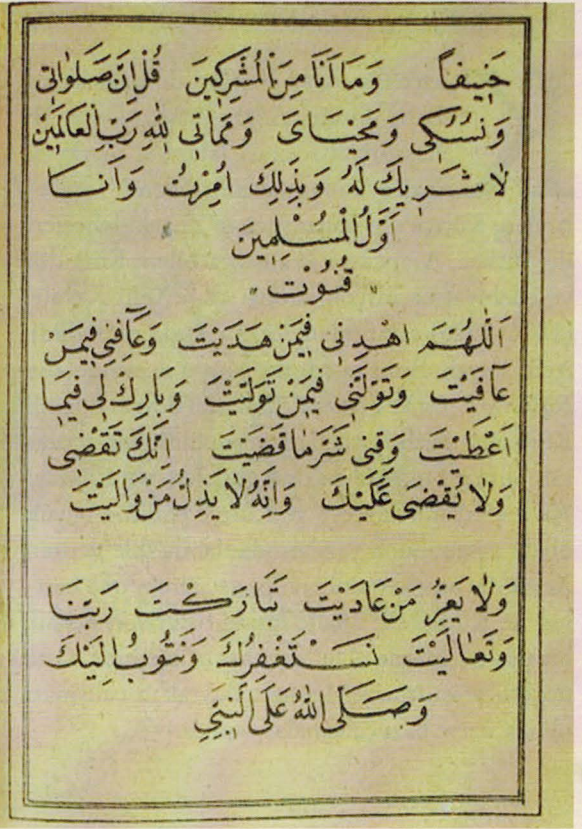 حَنِيفاً وَمَا اَنَا مِنَ الْمُشْرَكِينَ قُلْ اِنَّ صَلَوٰاتِى
وَنُسُكِى وَمَحْيَاىَ وَمَمَاتِى لِلّٰهِ رَبِّ الْعَالَمِيْنَ
لَا شَرِيكَ لَهُ وَبِذٰلِكَ اُمِرْتُ وَاَنَا
اَوَّلُ الْمُسْلِمِينَ
قُنُوْت
اَللّٰهُمَّ اهْدِنِى فِيمَنْ هَدَيْتَ وَعَافِنِى فِيمَنْ
عَافَيْتَ وَتَوَلَّنِى فِيمَنْ تَوَلَّيْتَ وَبَارِكْ لِى فِيمَا
اَعْطَيْتَ وَقِنِى شَرَّمَا قَضَيْتَ اِنَّكَ تَقْضِى
وَلَا يُقْضَى عَلَيْكَ وَاِنَّهُ لَا يَذِلُّ مَنْ وَالَيْتَ
وَلَا يَعِزُّ مَنْ عَادَيْتَ تَبَارَكْتَ رَبَّنَا
وَتَعَالَيْتَ نَسْتَغْفِرُكَ وَنَتُوبُ اِلَيْكَ
وَصَلَّى اللّٰهُ عَلَى النَّبِيِّ